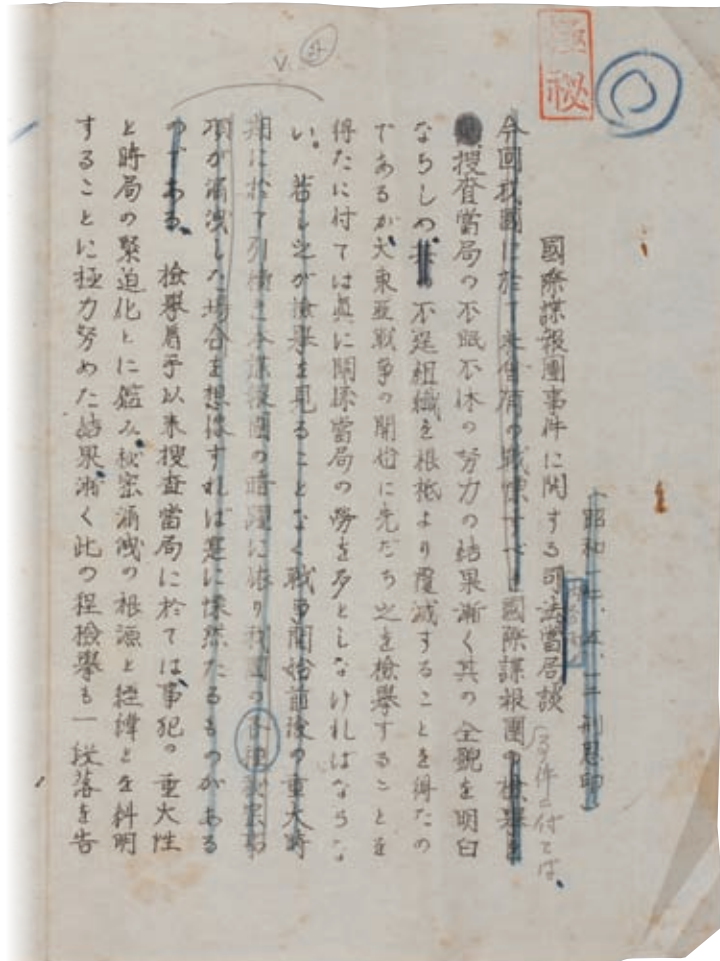 極秘
(昭和一七、五、一三 刑思印)
國際諜報團事件に関する司法當局談
事件に付ては、
今回我國に於て未曾有の戦慄すべき國際諜報團の検擧を
捜査當局の不眠不休の努力の結果漸く其の全貌を明白
ならしめ其の不逞組織を根柢より覆滅することを得たの
であるが大東亜戦争の開始に先だち之を検擧することを
得たに付ては眞に関係當局の勞を多としなければならな
い。若し之が検擧を見ることなく戦争開始前後の重大時
期に於て列検と本諜報團の暗躍に依り我國の各種秘密事
項が漏洩した場合を想像すれば寔に慄然たるものがある
のである。検擧着手以来捜査當局に於ては事犯の重大性
と時局の緊迫化とに鑑み秘密漏洩の根源と経緯とを糾明
することに極力努めた結果漸く此の程検擧も一段落を告